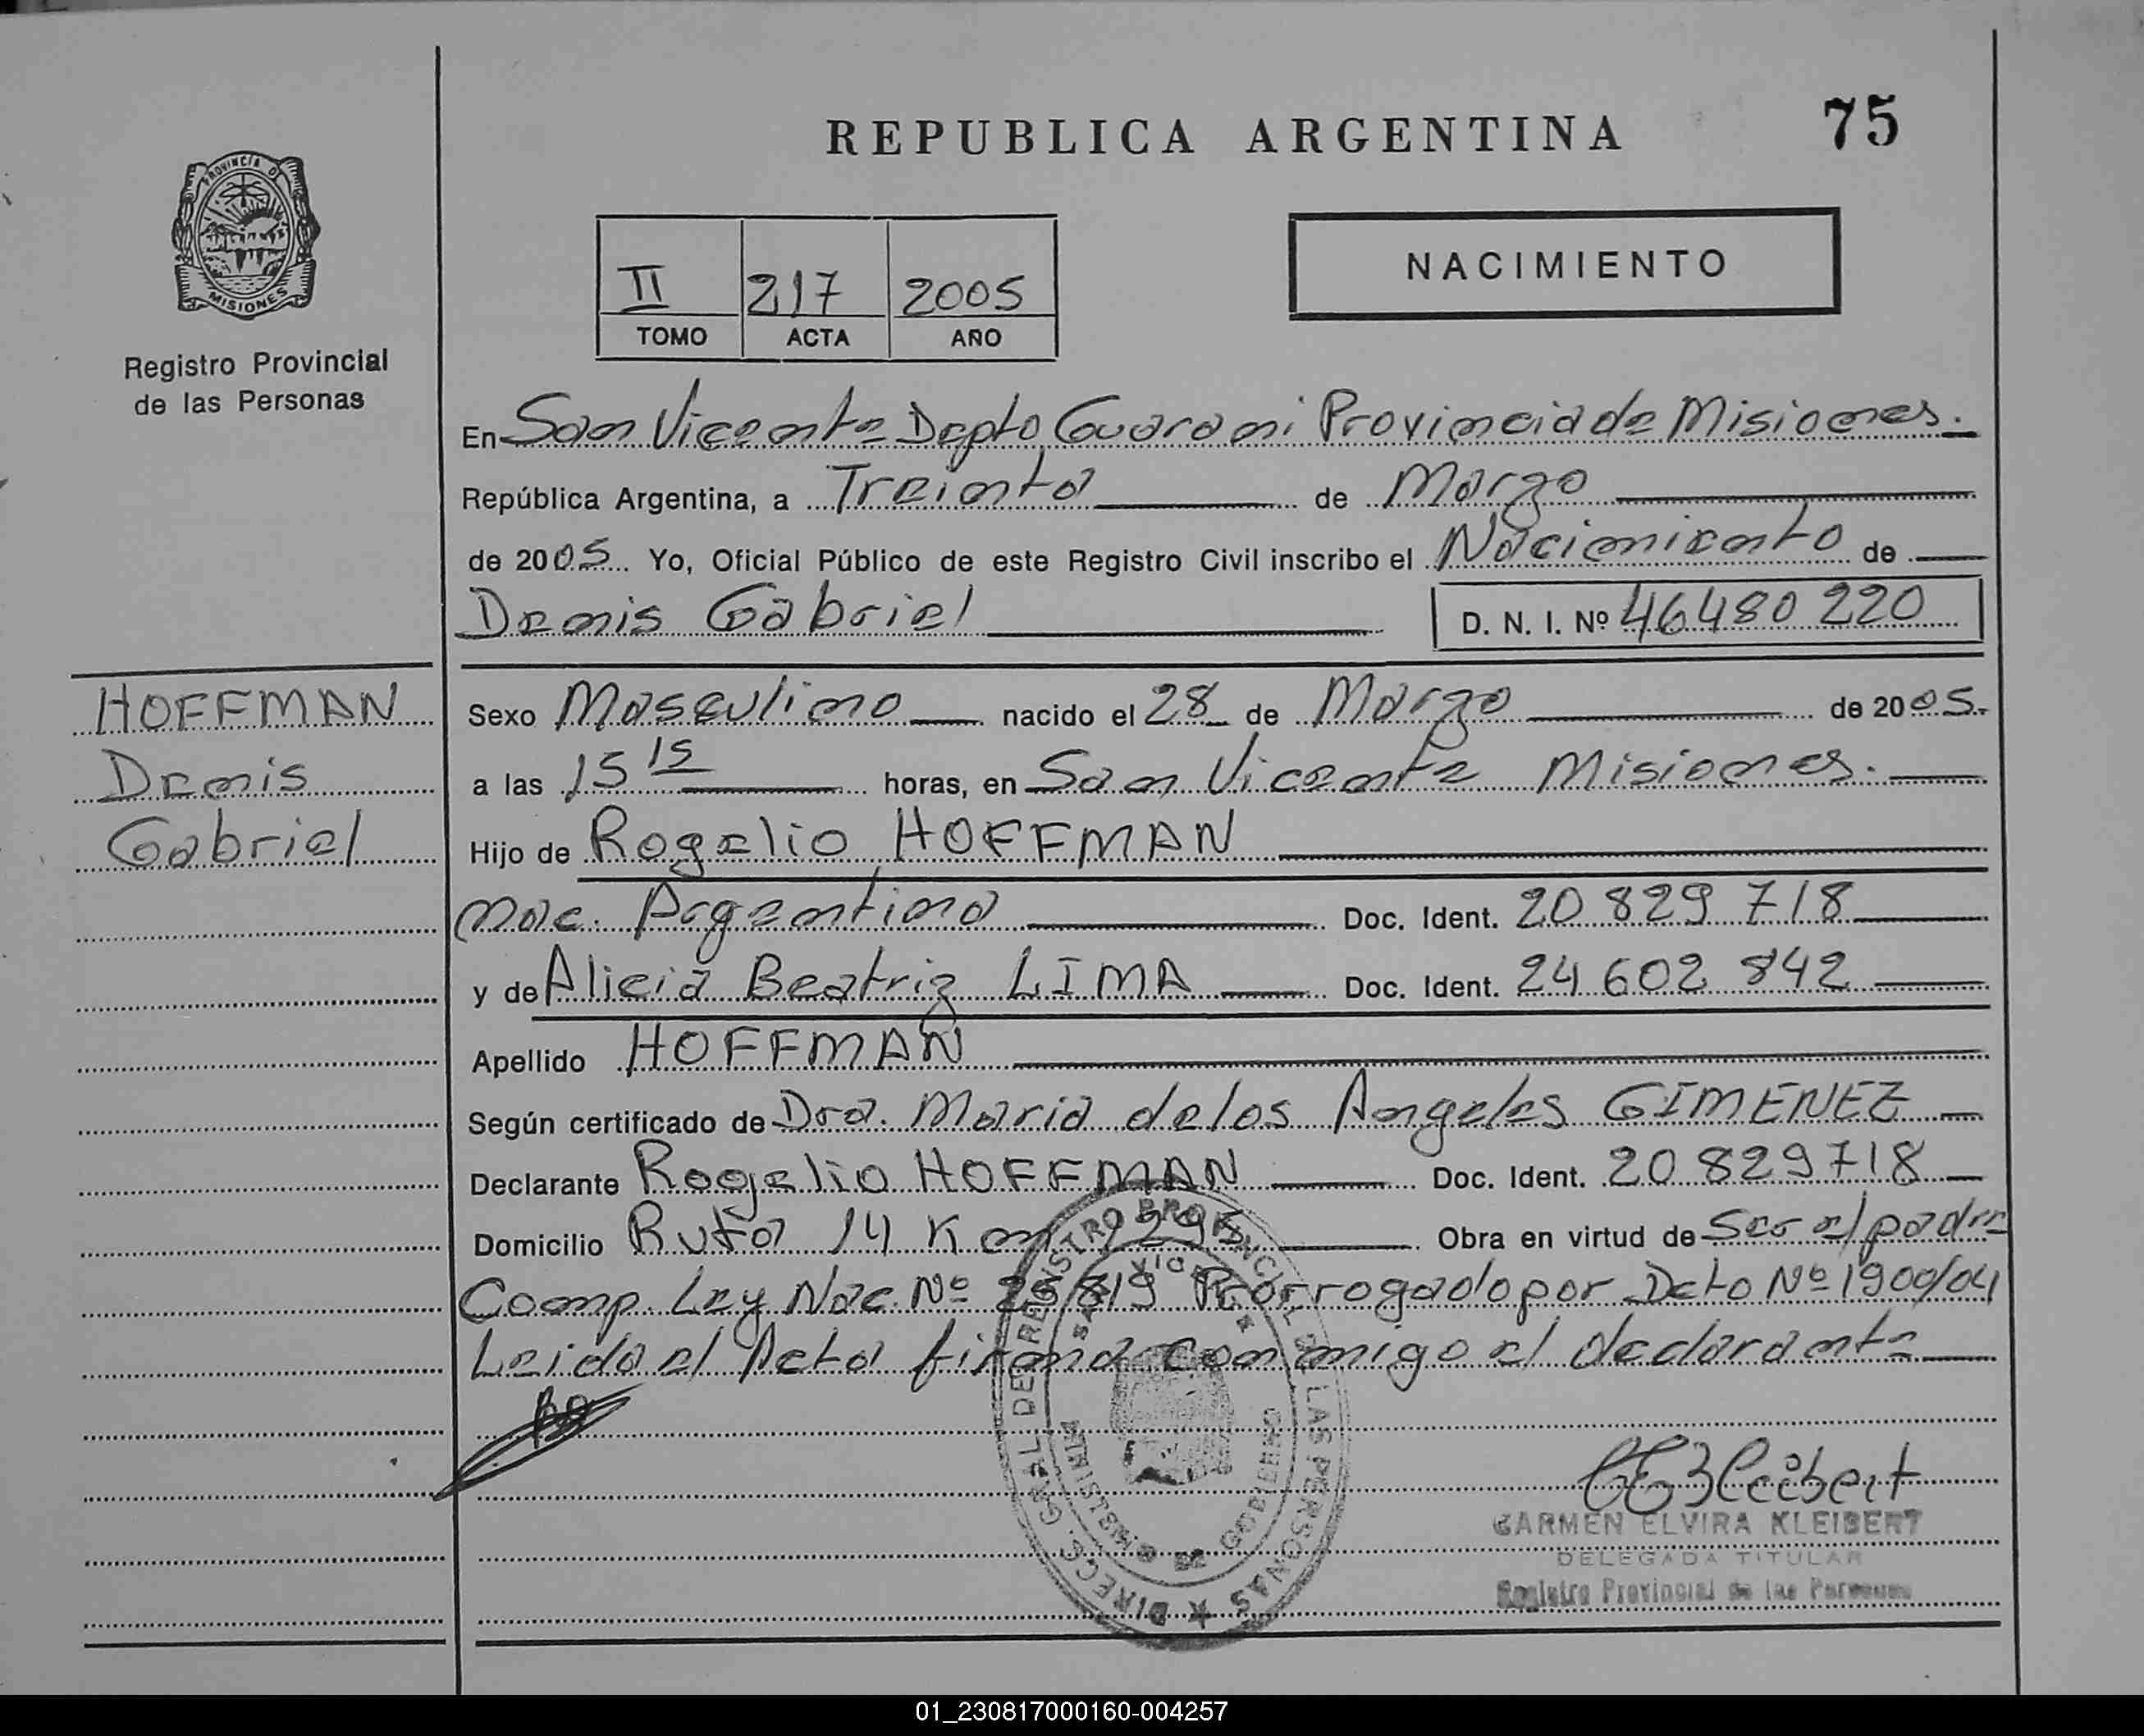 REPUBLICA ARGENTINA
75
PROVINCIA DE
MISIONES
Registro Provincial
de las Personas
II 217 2005
TOMO ACTA AÑO
NACIMIENTO
En San Vicente Depto Guarani Provincia de Misiones.
República Argentina, a Treinta de Marzo
de 2005 Yo, Oficial Público de este Registro Civil inscribo el Nacimiento de
Denis Gabriel D. N. I. Nº 46480 220
HOFFMAN
Denis
Gabriel
Sexo Masculino nacido el 28 de Marzo de 2005.
a las 15 15 horas, en San Vicente Misiones.
Hijo de Rogelio HOFFMAN
nac. Argentina Doc. Ident. 20 829 718
y de Alicia Beatriz LIMA Doc. Ident. 24 602 842
Apellido HOFFMAN
Según certificado de Dra. Maria de los Angeles GIMENEZ
Declarante Rogelio HOFFMAN Doc. Ident. 20 829718
Domicilio Ruta 14 Km Obra en virtud de Ser el padre
Comp. Ley Nac. Nº 25819 Prorrogado por Dcto Nº 1900/04
Leida el Acta firma conmigo el declarante
DIRECC. GRAL DE REGISTRO PROVINCIAL DE LAS PERSONAS
MINISTERIO DE GOBIERNO
CARMEN ELVIRA KLEIBERT
DELEGADA TITULAR
Registro Provincial de las Personas
01_230817000160-004257